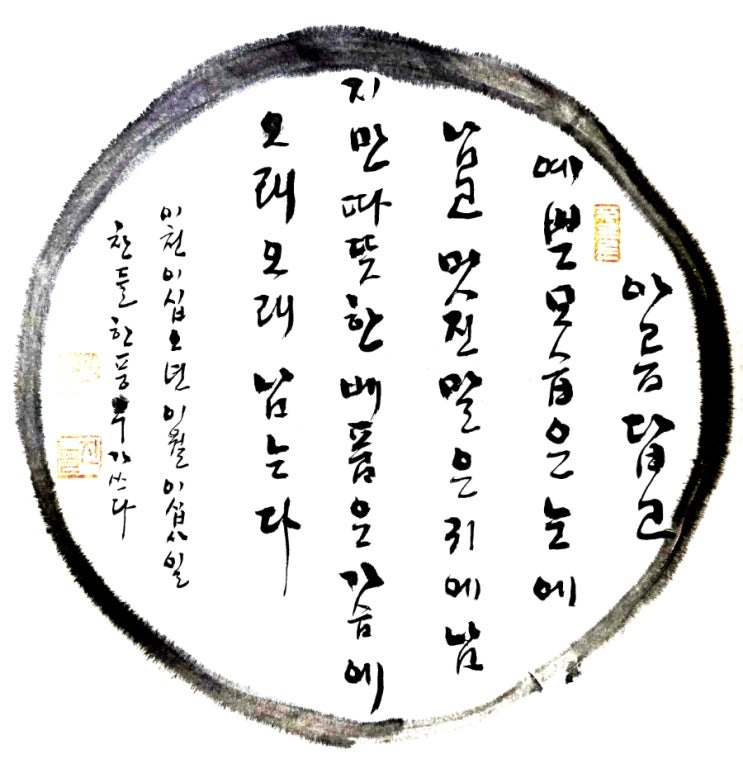 아름답고
예쁜모습은눈에
남고 멋진말은귀에남
지만따뜻한베품은가슴에
오래오래 남는다
이천이십오년이월이십사일
찬들한풍우가쓰다